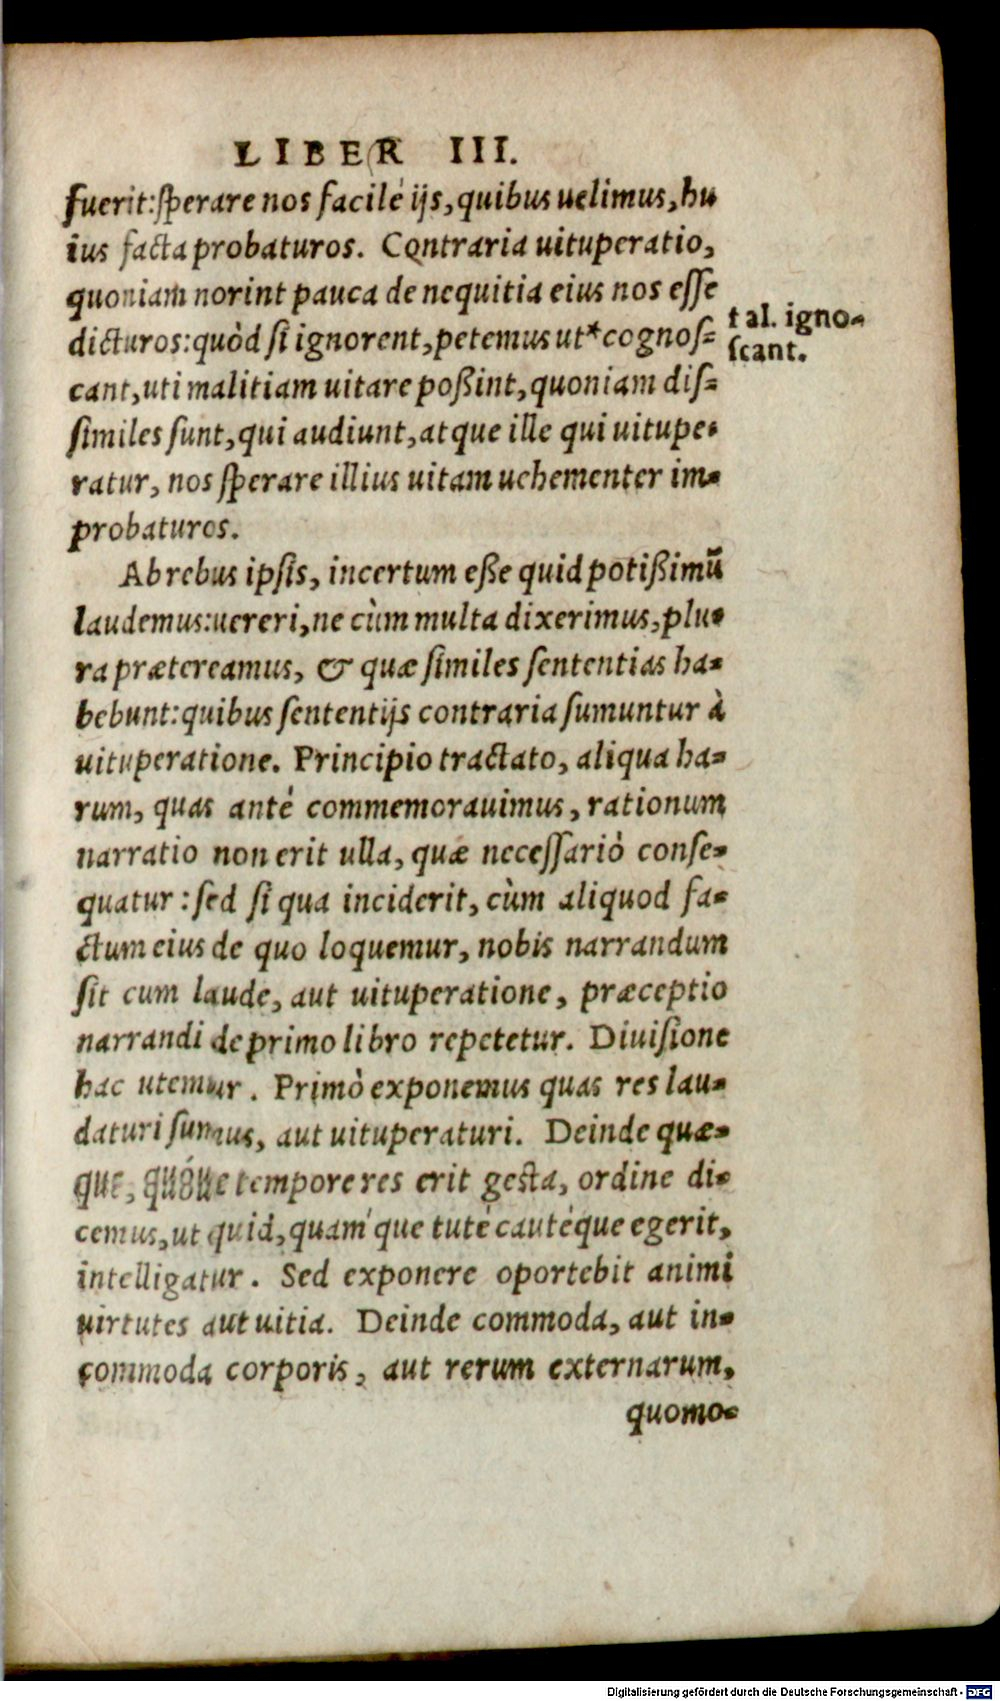 LIBER III.
fuerit: sperare nos facilè ijs, quibus uelimus, hu
ius facta probaturos. Contraria uituperatio,
quoniam norint pauca de nequitia eius nos esse
dicturos: quòd si ignorent, petemus ut* cognos-
cant, uti malitiam uitare poßint, quoniam dis-
similes sunt, qui audiunt, atque ille qui uitupe-
ratur, nos sperare illius uitam uehementer im-
probaturos.
† al. igno-
scant.
Ab rebus ipsis, incertum eße quid potißimū
laudemus: uereri, ne cùm multa dixerimus, plu-
ra prætereamus, & quæ similes sententias ha-
bebunt: quibus sententijs contraria sumuntur à
uituperatione. Principio tractato, aliqua ha-
rum, quas antè commemorauimus, rationum
narratio non erit ulla, quæ necessariò conse-
quatur: sed si qua inciderit, cùm aliquod fa-
ctum eius de quo loquemur, nobis narrandum
sit cum laude, aut uituperatione, præceptio
narrandi de primo libro repetetur. Diuisione
hac utemur. Primò exponemus quas res lau-
daturi sumus, aut uituperaturi. Deinde quæ-
que, quóue tempore res erit gesta, ordine di-
cemus, ut quid, quàm que tutè cautéque egerit,
intelligatur. Sed exponere oportebit animi
uirtutes aut uitia. Deinde commoda, aut in-
commoda corporis, aut rerum externarum,
quomo-
Digitalisierung gefördert durch die Deutsche Forschungsgemeinschaft - DFG